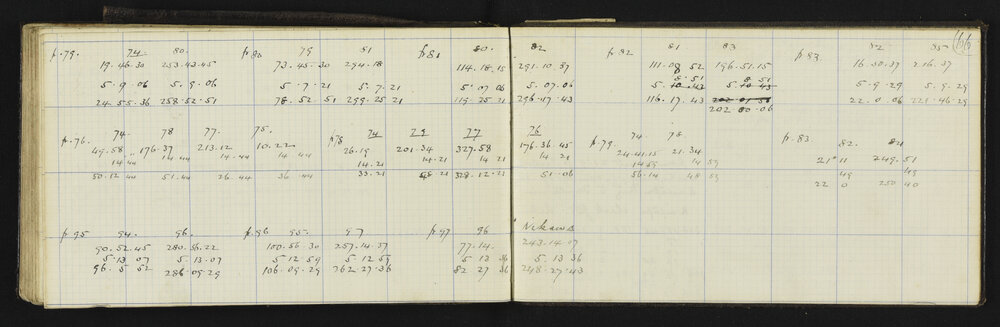 p.79. 74 80. p.80 79 81 p.81 80. 82 p.82 81 83 p.83 82 85 (66)
19.46.30 253.43.45 73.45.30 294.18 114.18.15 291.10.37 111.08 52 196.51.15 16.30.37 216.37
5.51 8 51
5.9.06 5.9.06 5.7.21 5.7.21 5.07.06 5.07.06 5.10.43 5.10 43 5.9.29 5.9.29
24.55.36 258.52.51 78.52.51 299.25 21 119.25.21 296.17.43 116.17.43 22.0.06 221.46.29
202.00.06
p.76. 74. 78 77. 75. p78 74 79 77 76 p.79. 74. 78. p.83 82. 81
49.58 176.37 213.12 10.22 26.19 201.34 327.58 176.36.45 24.41.15 21.34 21° 11 249.51
14.44 14.44 14.44 14.44 14.21 14.21 14 21 14 21 14 59 14 59 49 49
50.12 44 51.44 26.44 36.44 33.21 48.21 328.12.21 51.06 56.14 48 59 22 0 250 40
p.95 94. 96. p.96 95. 97. p.97 96 Nikaws
90.52.45 280.56.22 100.56 30 257.14.37 77.14. 243.14.07
5.13 07 5.13.07 5.12 59 5.12 59 5.13 36 5.13 36
96.5 52 286.09.29 106.09.29 262.27.36 82 27 36 248.27.43